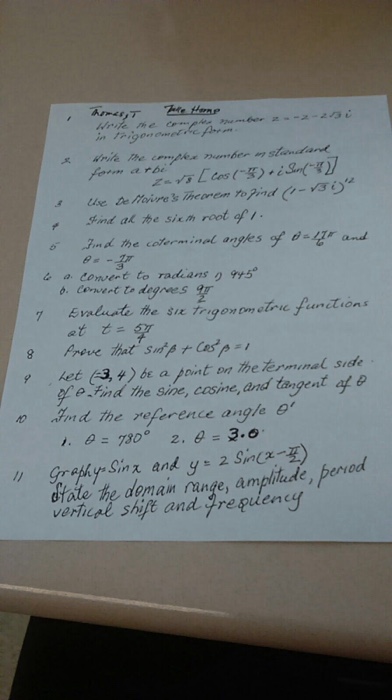 Thomas, T Take Home
1 Write the complex number z = -2 - 2√3 i
in trigonometric form.
2 Write the complex number in standard
form a+bi
Z = √8 [Cos(-π/3) + i Sin(-π/3)]
3 Use De Moivre's Theorem to find (1 - √3 i)¹²
4 Find all the sixth root of 1.
5 Find the coterminal angles of θ = 17π/6 and
θ = -7π/3
6 a. Convert to radians 1) 945°
b. Convert to degrees 9π/2
7 Evaluate the six trigonometric functions
at t = 5π/4
8 Prove that sin²β + Cos²β = 1
9 Let (-3, 4) be a point on the terminal side
of θ. Find the sine, cosine, and tangent of θ
10 Find the reference angle θ'
1. θ = 780° 2. θ = 3.0
11 Graph y=Sin x and y = 2 Sin(x-π/2)
State the domain range, amplitude, period
vertical shift and frequency